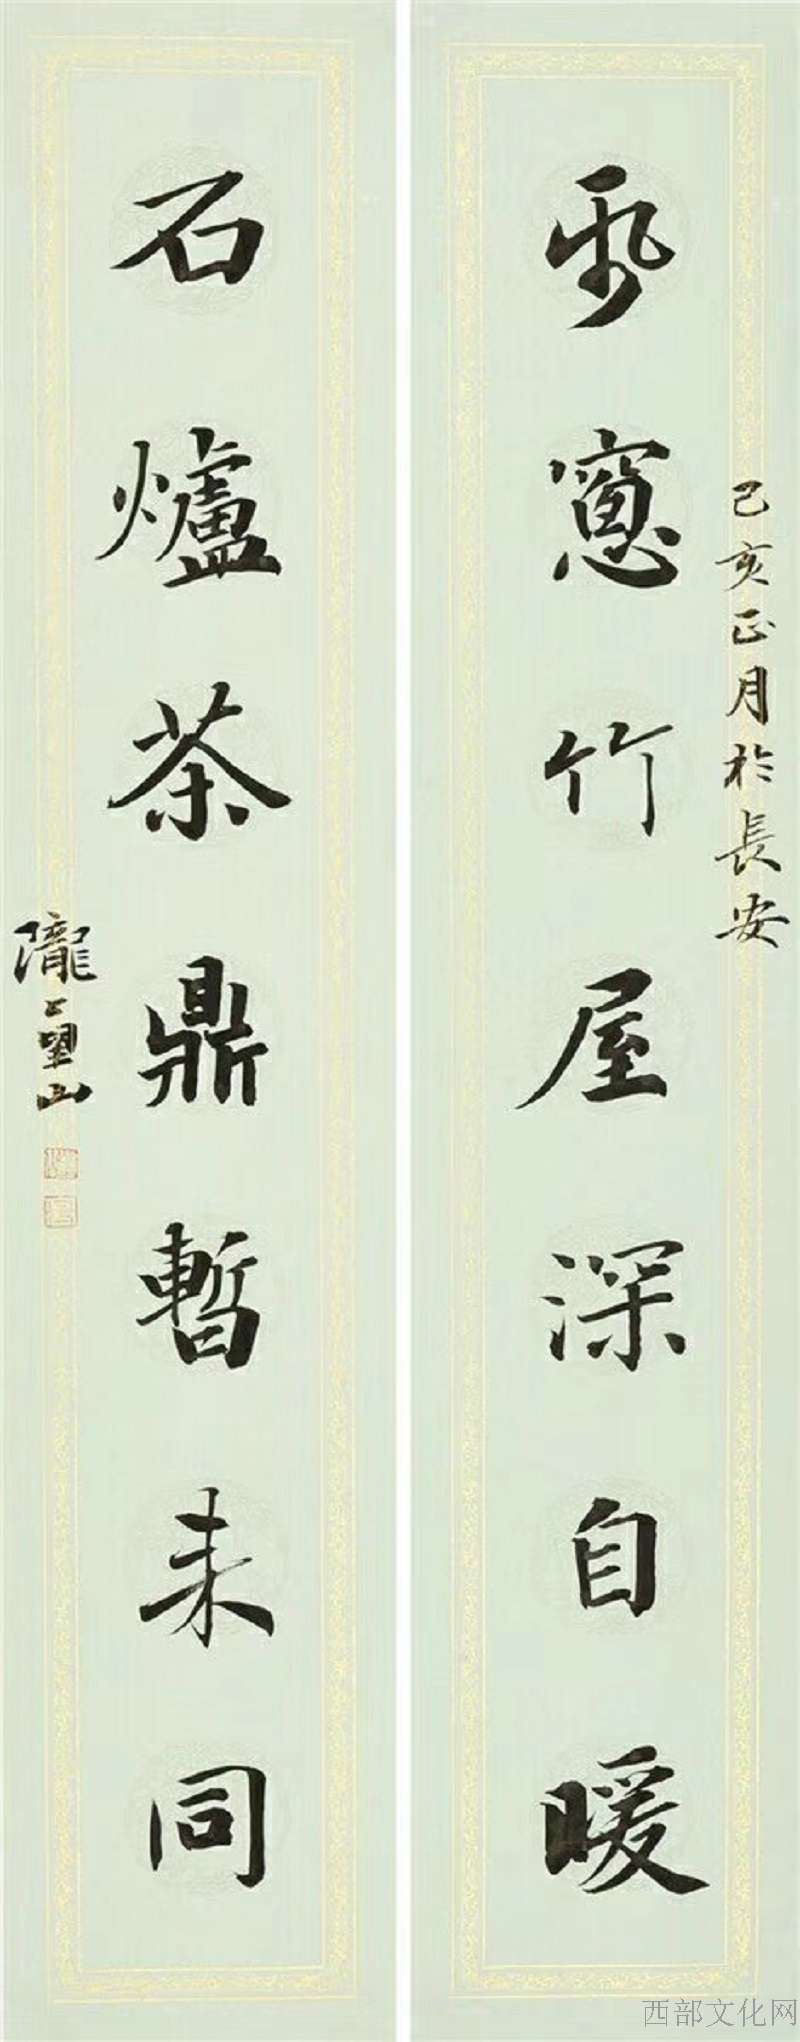 己亥正月於長安
帋窻竹屋深自暖
石爐茶鼎暫来同
隴上望山
西部文化网